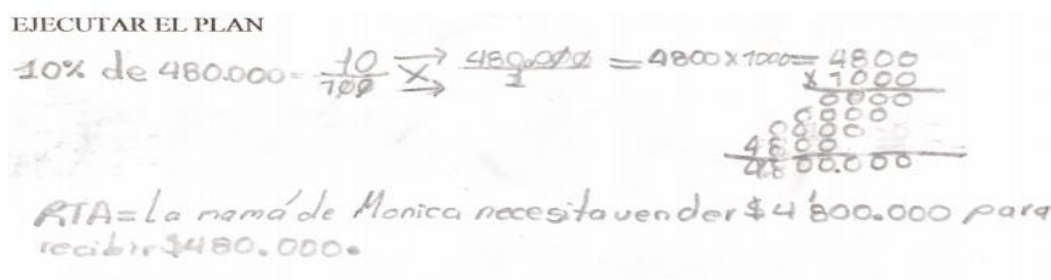 EJECUTAR EL PLAN
10% de 480.000= 10/100 X 480.000/1 = 4800 x 1000= 4800
x 1000
0000
0000
0000
4800
4800.000
RTA= La mamá de Monica necesita vender $4'800.000 para
recibir $480.000.